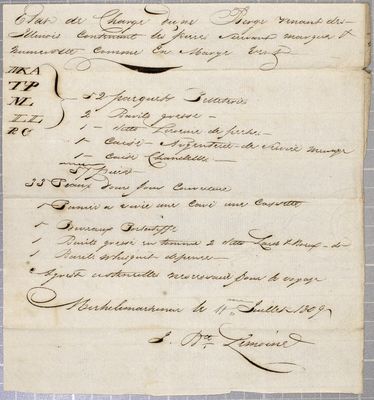 Etat de Charge d'une Barge venant des
Illinois Contenant les pieces suivant marques et
numerottés Comme En Marge
MKA
TP
NL
LL
PC
52 paquets Pelleterie
2 Barils graisse
1 ditto
1 Caisse Argenterie de
1 Caisse Chandelles
57 pieces
33 Peaux d'ours pour Couverture
1 Panier a une Cave une Cassette
1 Bureaux
1 Barils graisse en 2 ditto Lard &
1 Barils whisquit depence
Agrets et ustencilles necessaires pour le voyage
Michilimackinac le 11 Juillet 1809
J. Bte. Lemoine